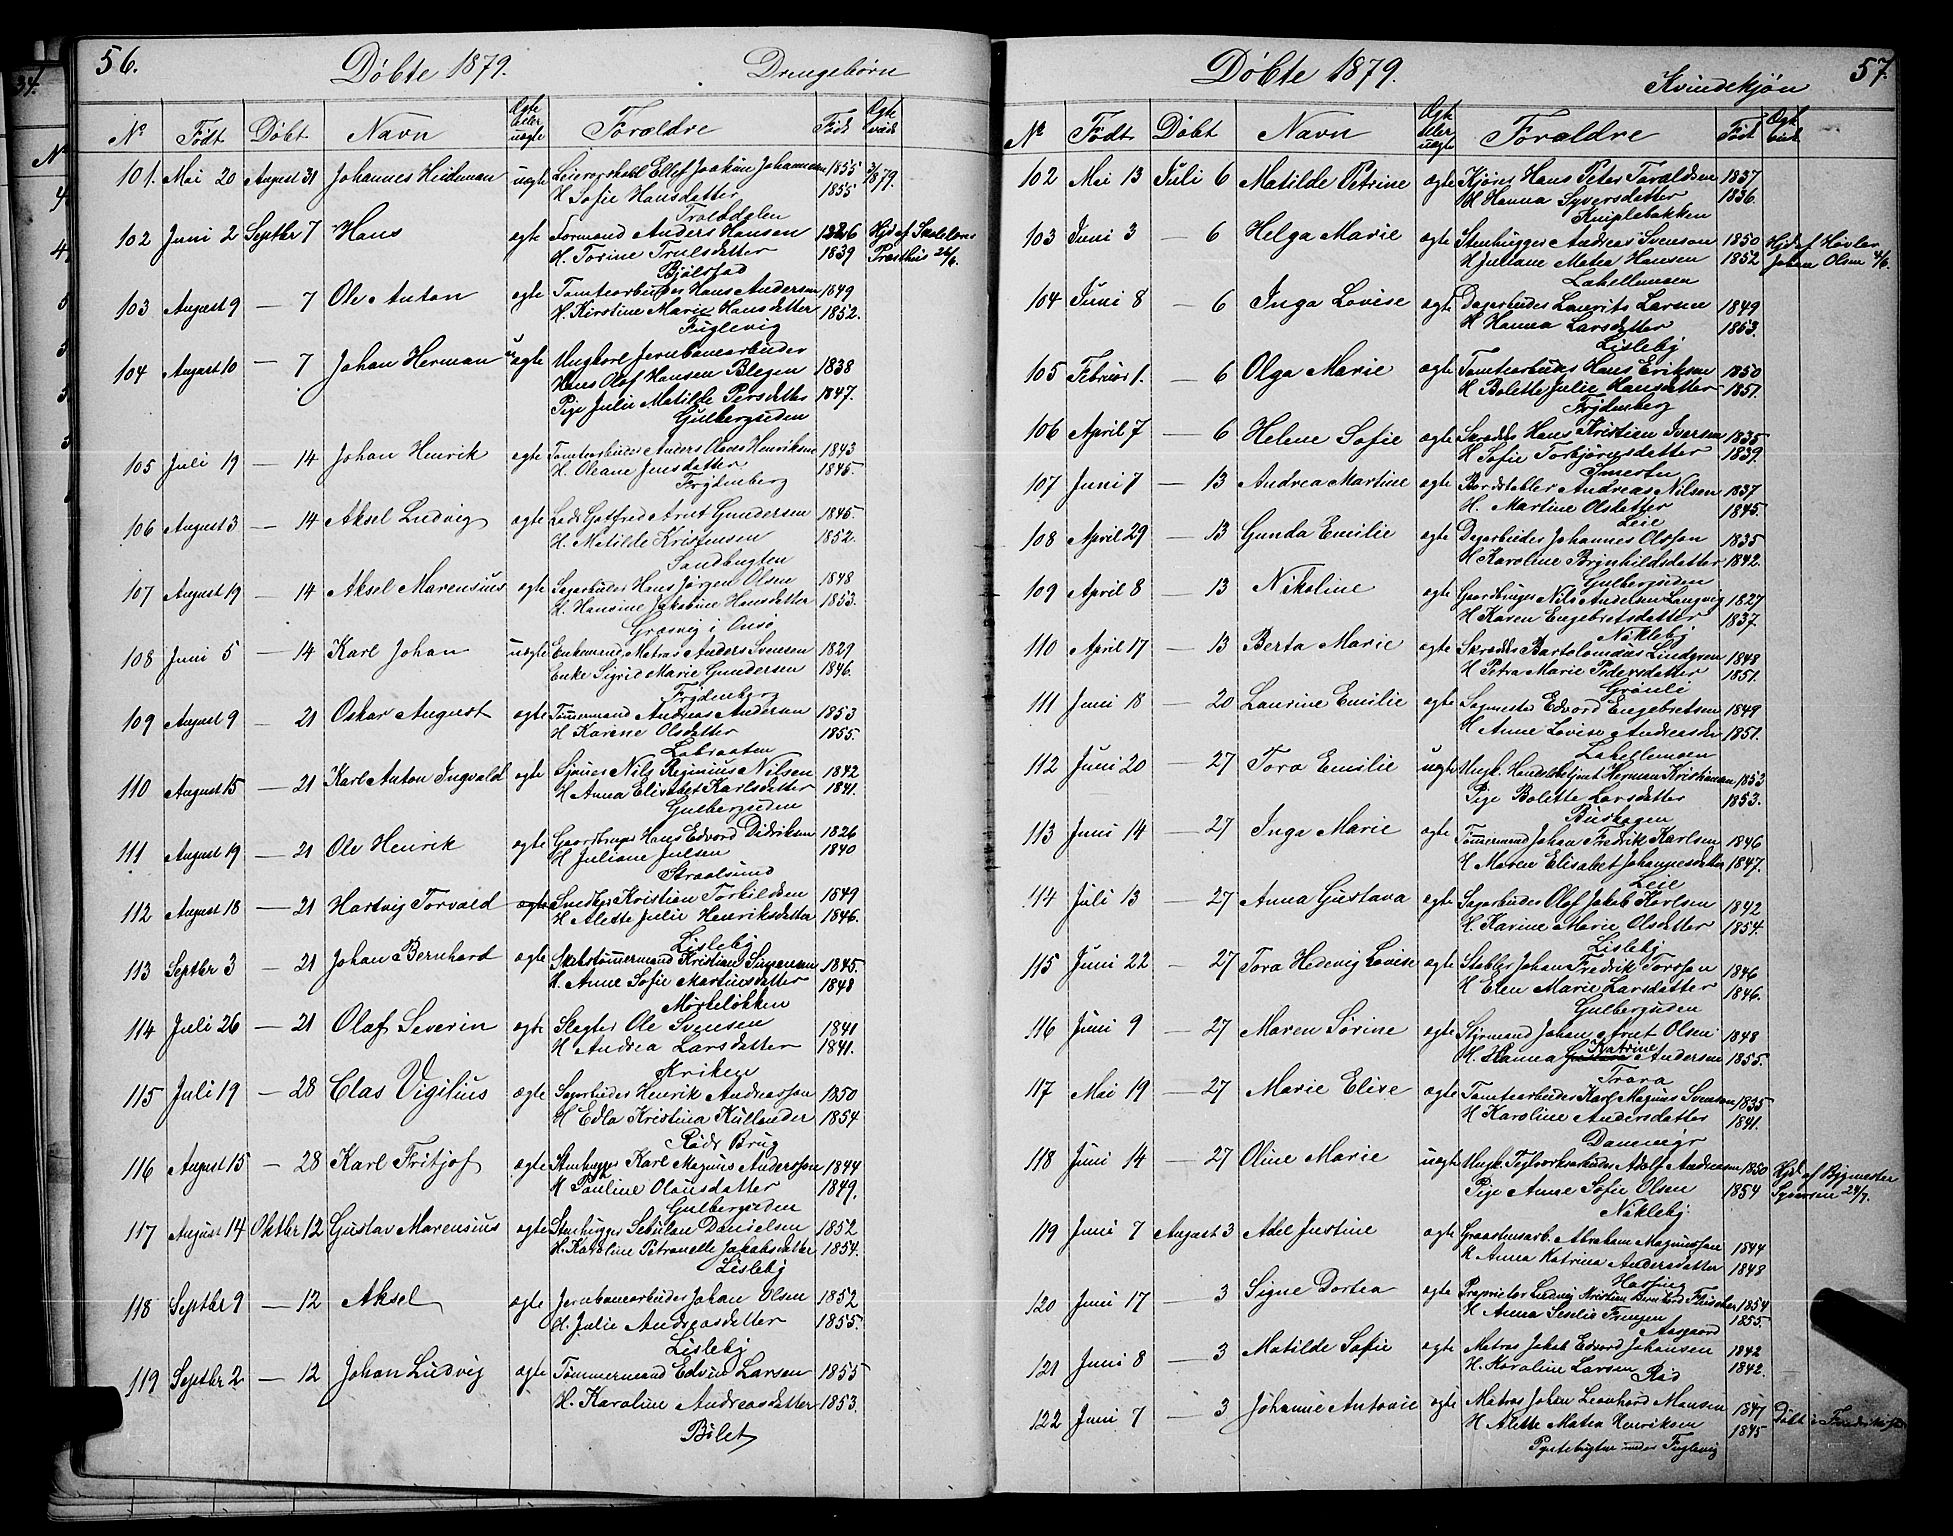 56.
Døbte 1879.
Drengebørn
No Født Døbt Navn Ægte eller uægte Forældre Født
101. Mai 20 August 31 Johannes Hideman uægte Ellef Joakim Johannesen 1855 3/8 79.
H Sofie Hansdatter 1855
Troldalen
102 Juni 2 Septbr 7 Hans ægte Formand Anders Hansen 1826 Hjd af Skolelærer
H. Torine Trulsdatter 1839 Præsthus 26/6.
Bjølstad
103 August 9 — 7 Ole Anton ægte Tomtearbeider Hans Andersen 1849
H. Kirstine Marie Hansdatter 1852.
Fuglevig
104 August 10 — 7 Johan Herman uægte Ungkarl Jernbanearbeider
Hans Olaf Hansen Blegen 1838
Pige Julie Matilde Persdatter 1847.
Gulbergsiden
105 Juli 19 — 14 Johan Henrik ægte Tomtearbeider Anders Olaus Henriksen 1843
H. Oleane Jensdatter 1845.
Frydenberg
106 August 3 — 14 Aksel Ludvig ægte Lods Gotfred Arnt Gundersen 1845
H. Matilde Kristensen 1852.
Sandbugten
107 August 19 — 14 Aksel Marensius ægte Sagarbeider Hans Jørgen Olsen 1848
H. Hansine Jakobine Hansdatter 1853.
Græsvig i Onsø
108 Juni 5 — 14 Karl Johan uægte Enkemand Matros Anders Svensen 1829
Enke Sigrid Marie Gundersen 1846.
Frydenberg
109 August 9 — 21 Oskar August ægte Tømmermand Andreas Andersen 1853
H Karine Olsdatter 1855.
Labraaten
110 August 15 — 21 Karl Anton Ingvald ægte Sjømand Nils Reginius Nilsen 1842
H Anna Elisabet Karlsdatter 1841.
Gulbergsiden
111 August 19 — 21 Ole Henrik ægte Gaardbruger Hans Edvard Didriksen 1826
H Juliane Julsen 1840
Straalsund
112 August 18 — 21 Hartvig Torvald ægte Smed Kristian Torkildsen 1849
H Alette Julie Henriksdatter 1846.
Lisleby
113 Septbr 3 — 21 Johan Bernhard ægte Skibstømmermand Kristian 1845.
H. Anne Sofie Martinsdatter 1848
Mørkeløkken
114 Juli 26 — 21 Olaf Severin ægte Slagter Ole Svensen 1841
H Andrea Larsdatter 1841.
Kriken
115 Juli 19 — 28 Clas Vigilius ægte Sagarbeider Henrik Andreassen 1850
H Edla Kristina Kullander 1854
Røds Brug
116 August 15 — 28 Karl Fritjof ægte Stenhugger Karl Magnus Andersson 1844
H Pauline Olausdatter 1849.
Gulbergsiden
117 August 14 Oktbr 12 Gustav Marensius ægte Stenhugger Danielsen 1852
H. Karoline Petronelle Jakobsdatter 1854.
Lisleby
118 Septbr 9 — 12 Aksel ægte Jernbanearbeider Johan Olsen 1852
H. Julie Andreasdatter 1855.
Lisleby
119 Septbr 2 — 12 Johan Ludvig ægte Tømmermand Edvin Larsen 1855
H. Karoline Andreasdatter 1853.
Bilet
57.
Døbte 1879.
Kvindekjøn
No Født Døbt Navn Ægte eller uægte Forældre Født
102 Mai 13 Juli 6 Matilde Petrine ægte Kjører Hans Peter Toraldsen 1837
H Hanna Syversdatter 1836.
Kniplebakken
103 Juni 3 — 6 Helga Marie ægte Stenhugger Andreas Svenson 1850 Hjd af Høvler
H Juliane Matea Hansen 1852 Johan Olsen 4/6.
Labellmoen
104 Juni 8 — 6 Inga Lovise ægte Dagarbeider Laurits Larsen 1849
H Hanna Larsdatter 1853.
Lisleby
105 Februar 1. — 6 Olga Marie ægte Tomtearbeider Hans Eriksen 1850
H Bolette Julie Hansdatter 1851.
Frydenberg
106 April 7 — 6 Helene Sofie ægte Skrædder Hans Kristian Iversen 1835
H Sofie Torbjørnsdatter 1839.
Smertu
107 Juni 7 — 13 Andrea Martine ægte Bordstabler Andreas Nilsen 1837
H. Martine Olsdatter 1845.
Leie
108 April 29 — 13 Gunda Emilie ægte Dagarbeider Johannes Olsson 1835
H Karoline Brynhildsdatter 1842.
Gulbergsiden
109 April 8 — 13 Nikoline ægte Gaardbruger Nils Andersen Langvig 1827
H Karen Engebretsdatter 1837
Nikleby
110 April 17 — 13 Berta Marie ægte Skrædder Bartolomæus Lindgren 1848
H Petra Marie Pedersdatter 1851.
Grønli
111 Juni 18 — 20 Laurine Emilie ægte Sagmester Edvard Engebretsen 1849
H Anne Lovise Andreasdtr 1851.
Labellmoen
112 Juni 20 — 27 Tora Emilie uægte Ungk. Herman Kristiansen 1853
Pige Bolette Larsdatter 1853.
Buskogen
113 Juni 14 — 27 Inga Marie ægte Tømmermand Johan Fredrik Karlsen 1846
H Maren Elisabet Johannesdatter 1847.
Leie
114 Juli 13 — 27 Anna Gustava ægte Sagarbeider Olaf Jakob Karlsen 1842
H. Karine Marie Olsdatter 1854.
Lisleby
115 Juni 22 — 27 Tora Hedevig Lovise ægte Stabler Johan Fredrik Torsson 1846
H Elen Marie Larsdatter 1846.
Gulbergsiden
116 Juni 9 — 27 Maren Sørine ægte Styrmand Johan Arnt Olsen 1848
H. Hanna Katrine Andersen 1855.
Trara
117 Mai 19 — 27 Marie Elise ægte Tomtearbeider Karl Magnus Svenson 1835
H Karoline Andersdatter 1841.
Dammyr
118 Juni 14 — 27 Oline Marie uægte Ungk. Teglverksarbeider Adolf Andreasen 1850 Hjd af Bygmester
Pige Anne Sofie Olsen 1854 Syversen 24/7.
Nikleby
119 Juni 7 August 3 Adel Justine ægte Graastensarb. Abraham Magnusson 1844
H Anna Katrina Andersdatter 1848
120 Juni 17 — 3 Signe Dortea ægte Proprietær Ludvig Kristian Bernhard Fleischer 1854
H Anna Seselie Frengen 1855.
Aagaard
121 Juni 8 — 3 Matilde Sofie ægte Matros Jakob Edvard Johansen 1842
H. Karoline Larsen 1842.
Rød
122 Juni 7 — 3 Johanne Antonie ægte Matros Johan Leonhard Monsen 1847 Døbt i Fredriksstad
H Alette Matea Henriksen 1845
under Fuglevig